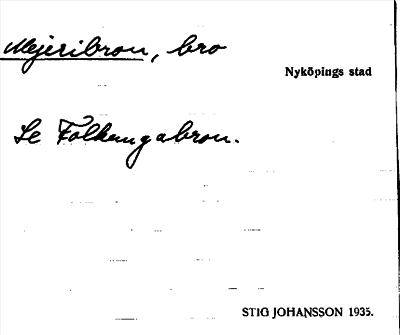 Mejeribron, bro
Nyköpings stad
Se Folkungabron.
STIG JOHANSSON 1935.